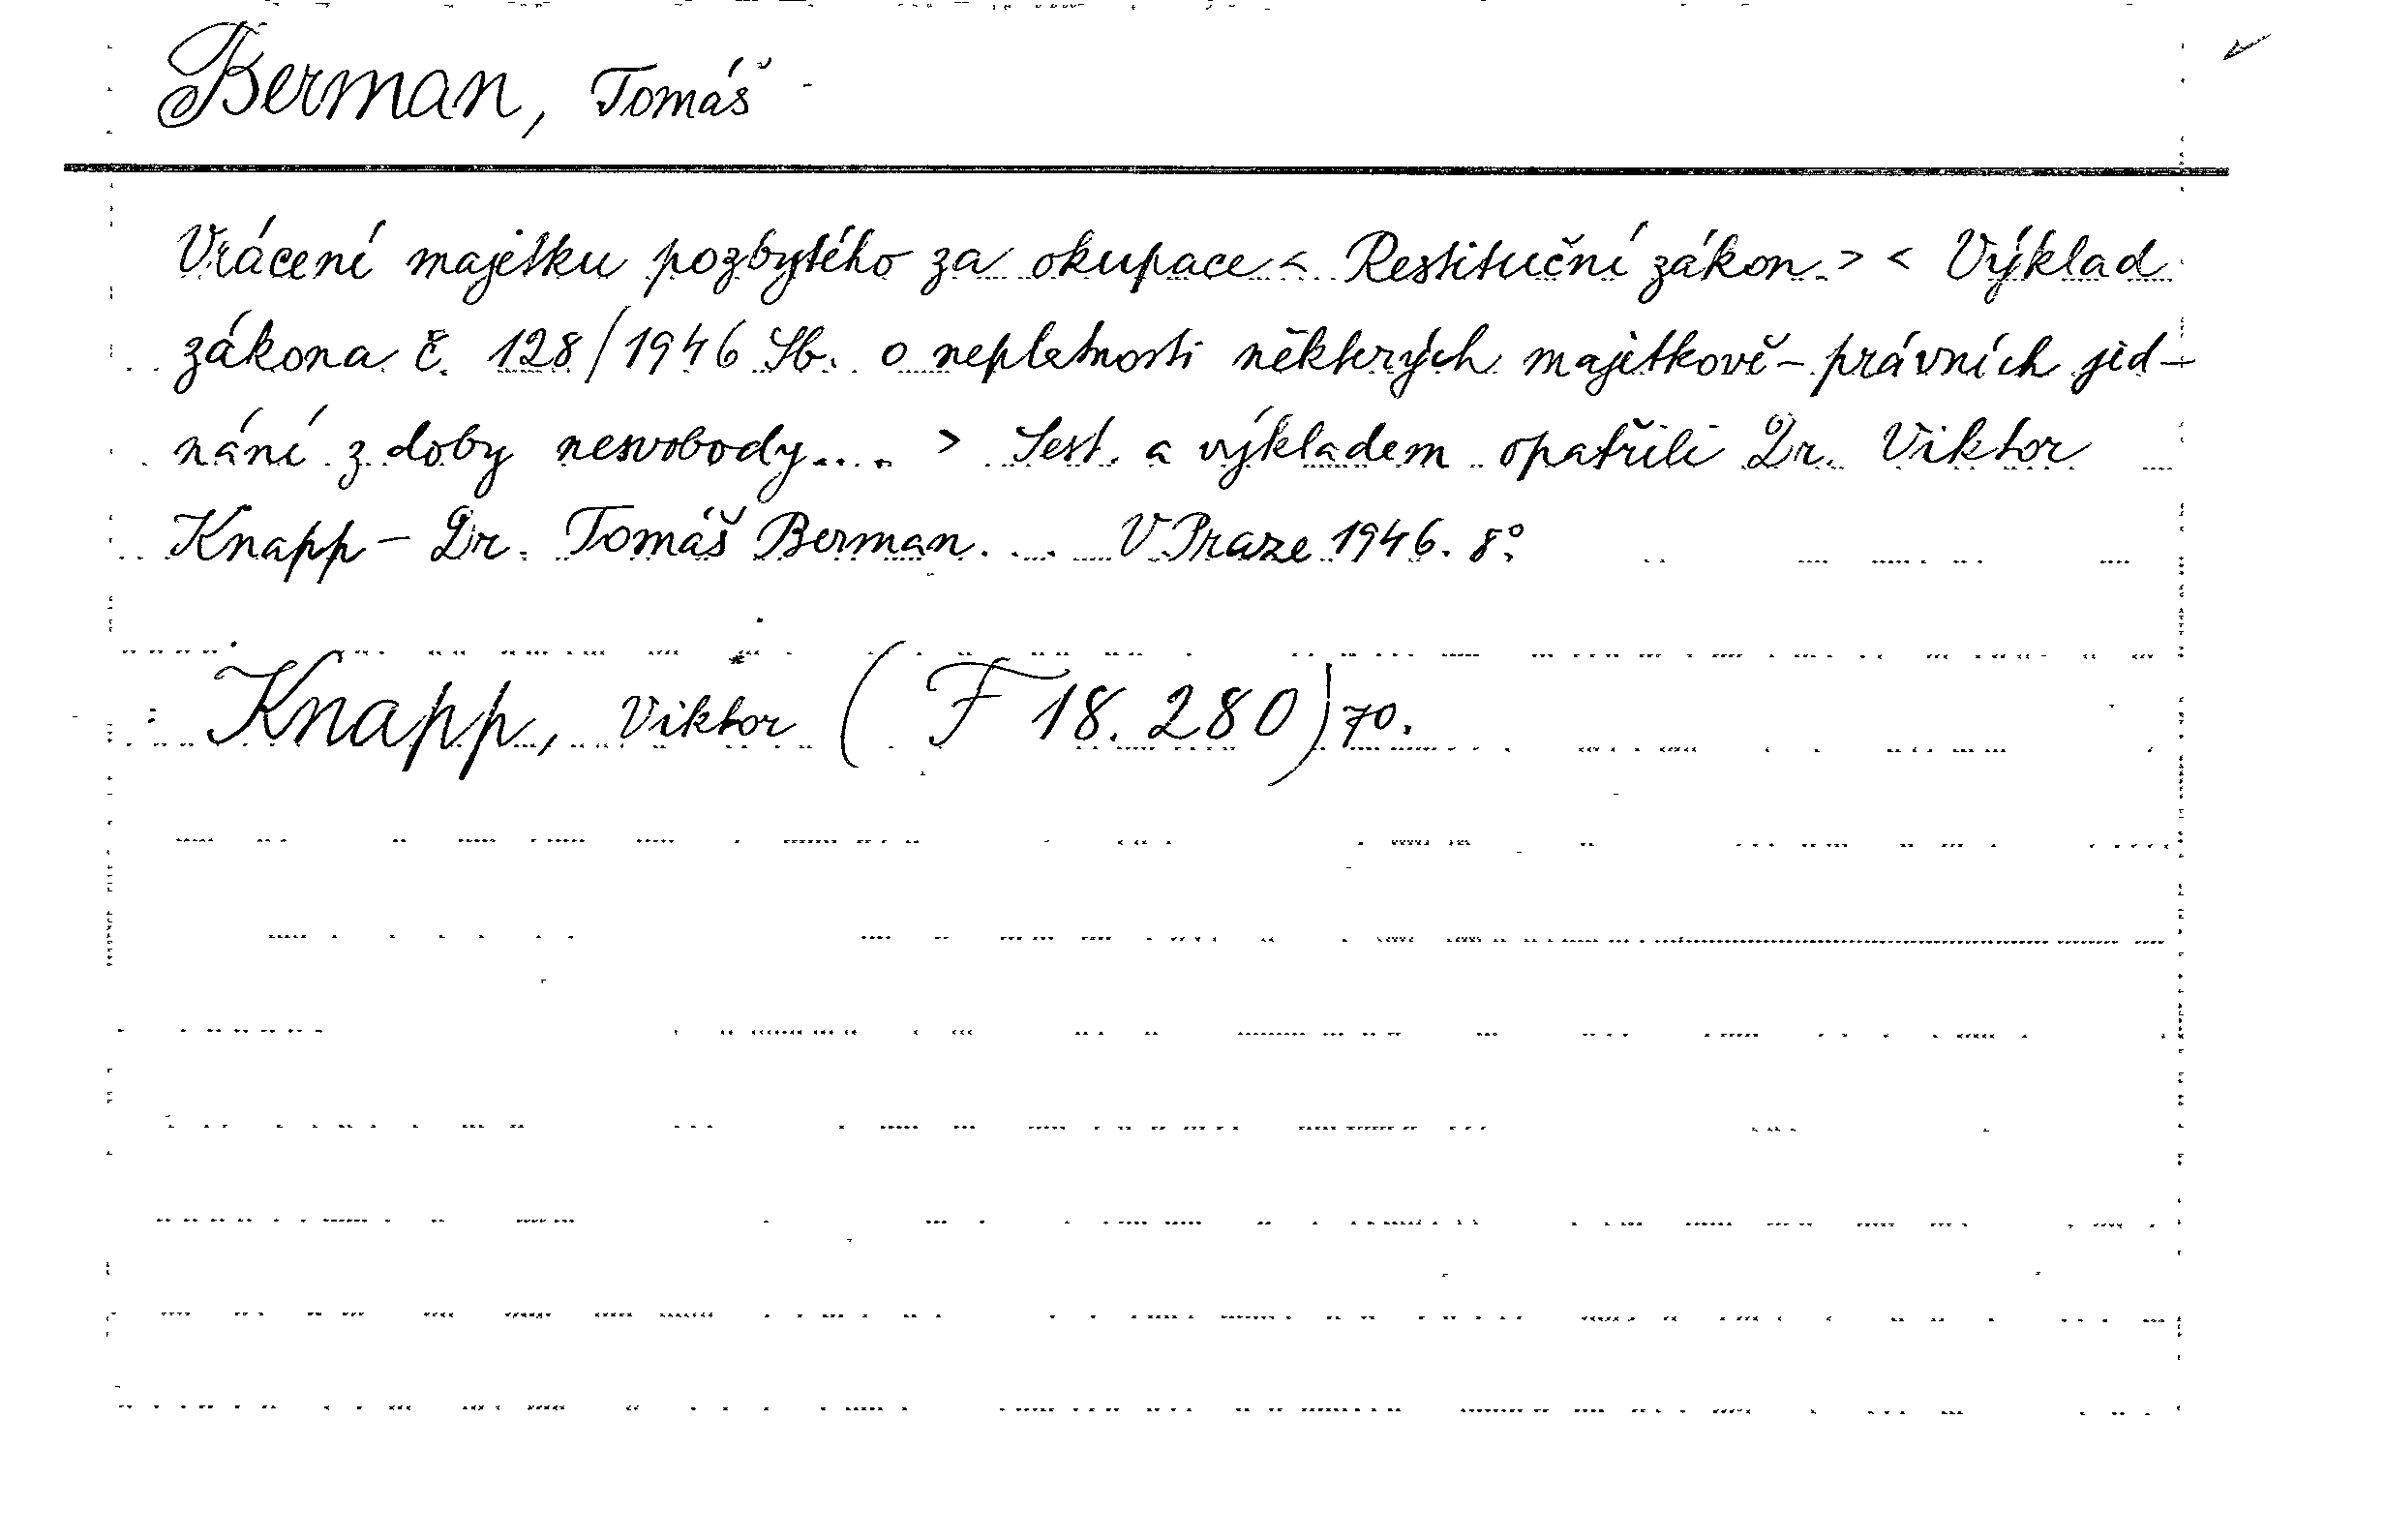 Berman, Tomáš
Vrácení majetku pozbytého za okupace < Restituční zákon. > < Výklad
zákona č. 128/1946 Sb. o neplatnosti některých majetkově-právních jed-
nání z doby nesvobody.... > Sest. a výkladem opatřili Dr. Viktor
Knapp - Dr. Tomáš Berman. ... V Praze 1946. 8°.
Knapp, Viktor (F 18.280) 70.